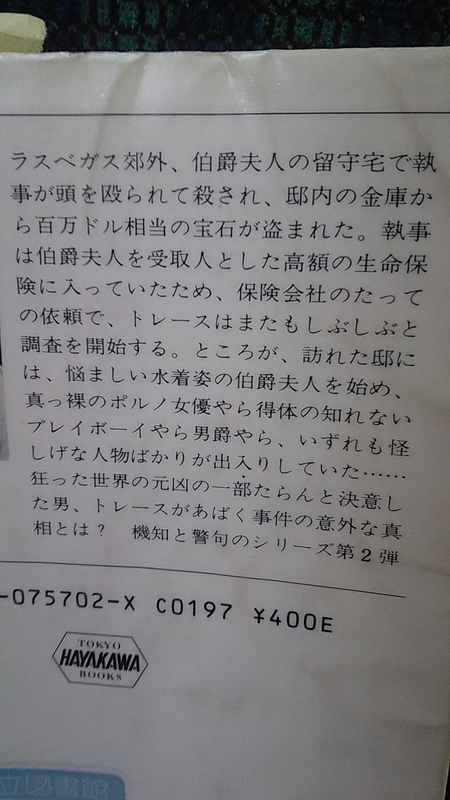 ラスベガス郊外、伯爵夫人の留守宅で執
事が頭を殴られて殺され、邸内の金庫か
ら百万ドル相当の宝石が盗まれた。執事
は伯爵夫人を受取人とした高額の生命保
険に入っていたため、保険会社のたって
の依頼で、トレースはまたもしぶしぶと
調査を開始する。ところが、訪れた邸に
は、悩ましい水着姿の伯爵夫人を始め、
真っ裸のポルノ女優やら得体の知れない
プレイボーイやら男爵やら、いずれも怪
しげな人物ばかりが出入りしていた……
狂った世界の元凶の一部たらんと決意し
た男、トレースがあばく事件の意外な真
相とは？　機知と警句のシリーズ第２弾
-075702-X C0197 ¥400E
TOKYO
HAYAKAWA
BOOKS
立図書館